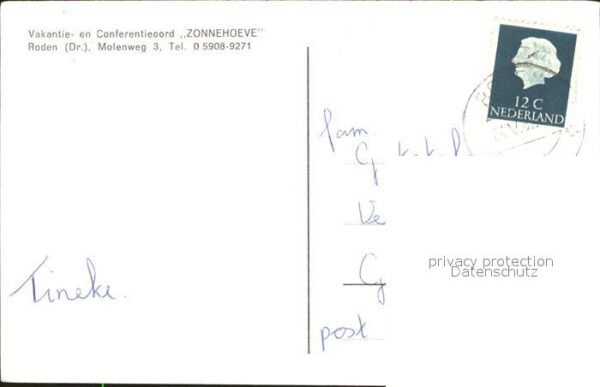 Vakantie- en Conferentieoord „ZONNEHOEVE"
Roden (Dr.), Molenweg 3, Tel. 0 5908-9271
12 C
NEDERLAND
fam.
G
Ve
G
post
privacy protection
Datenschutz
Tineke.